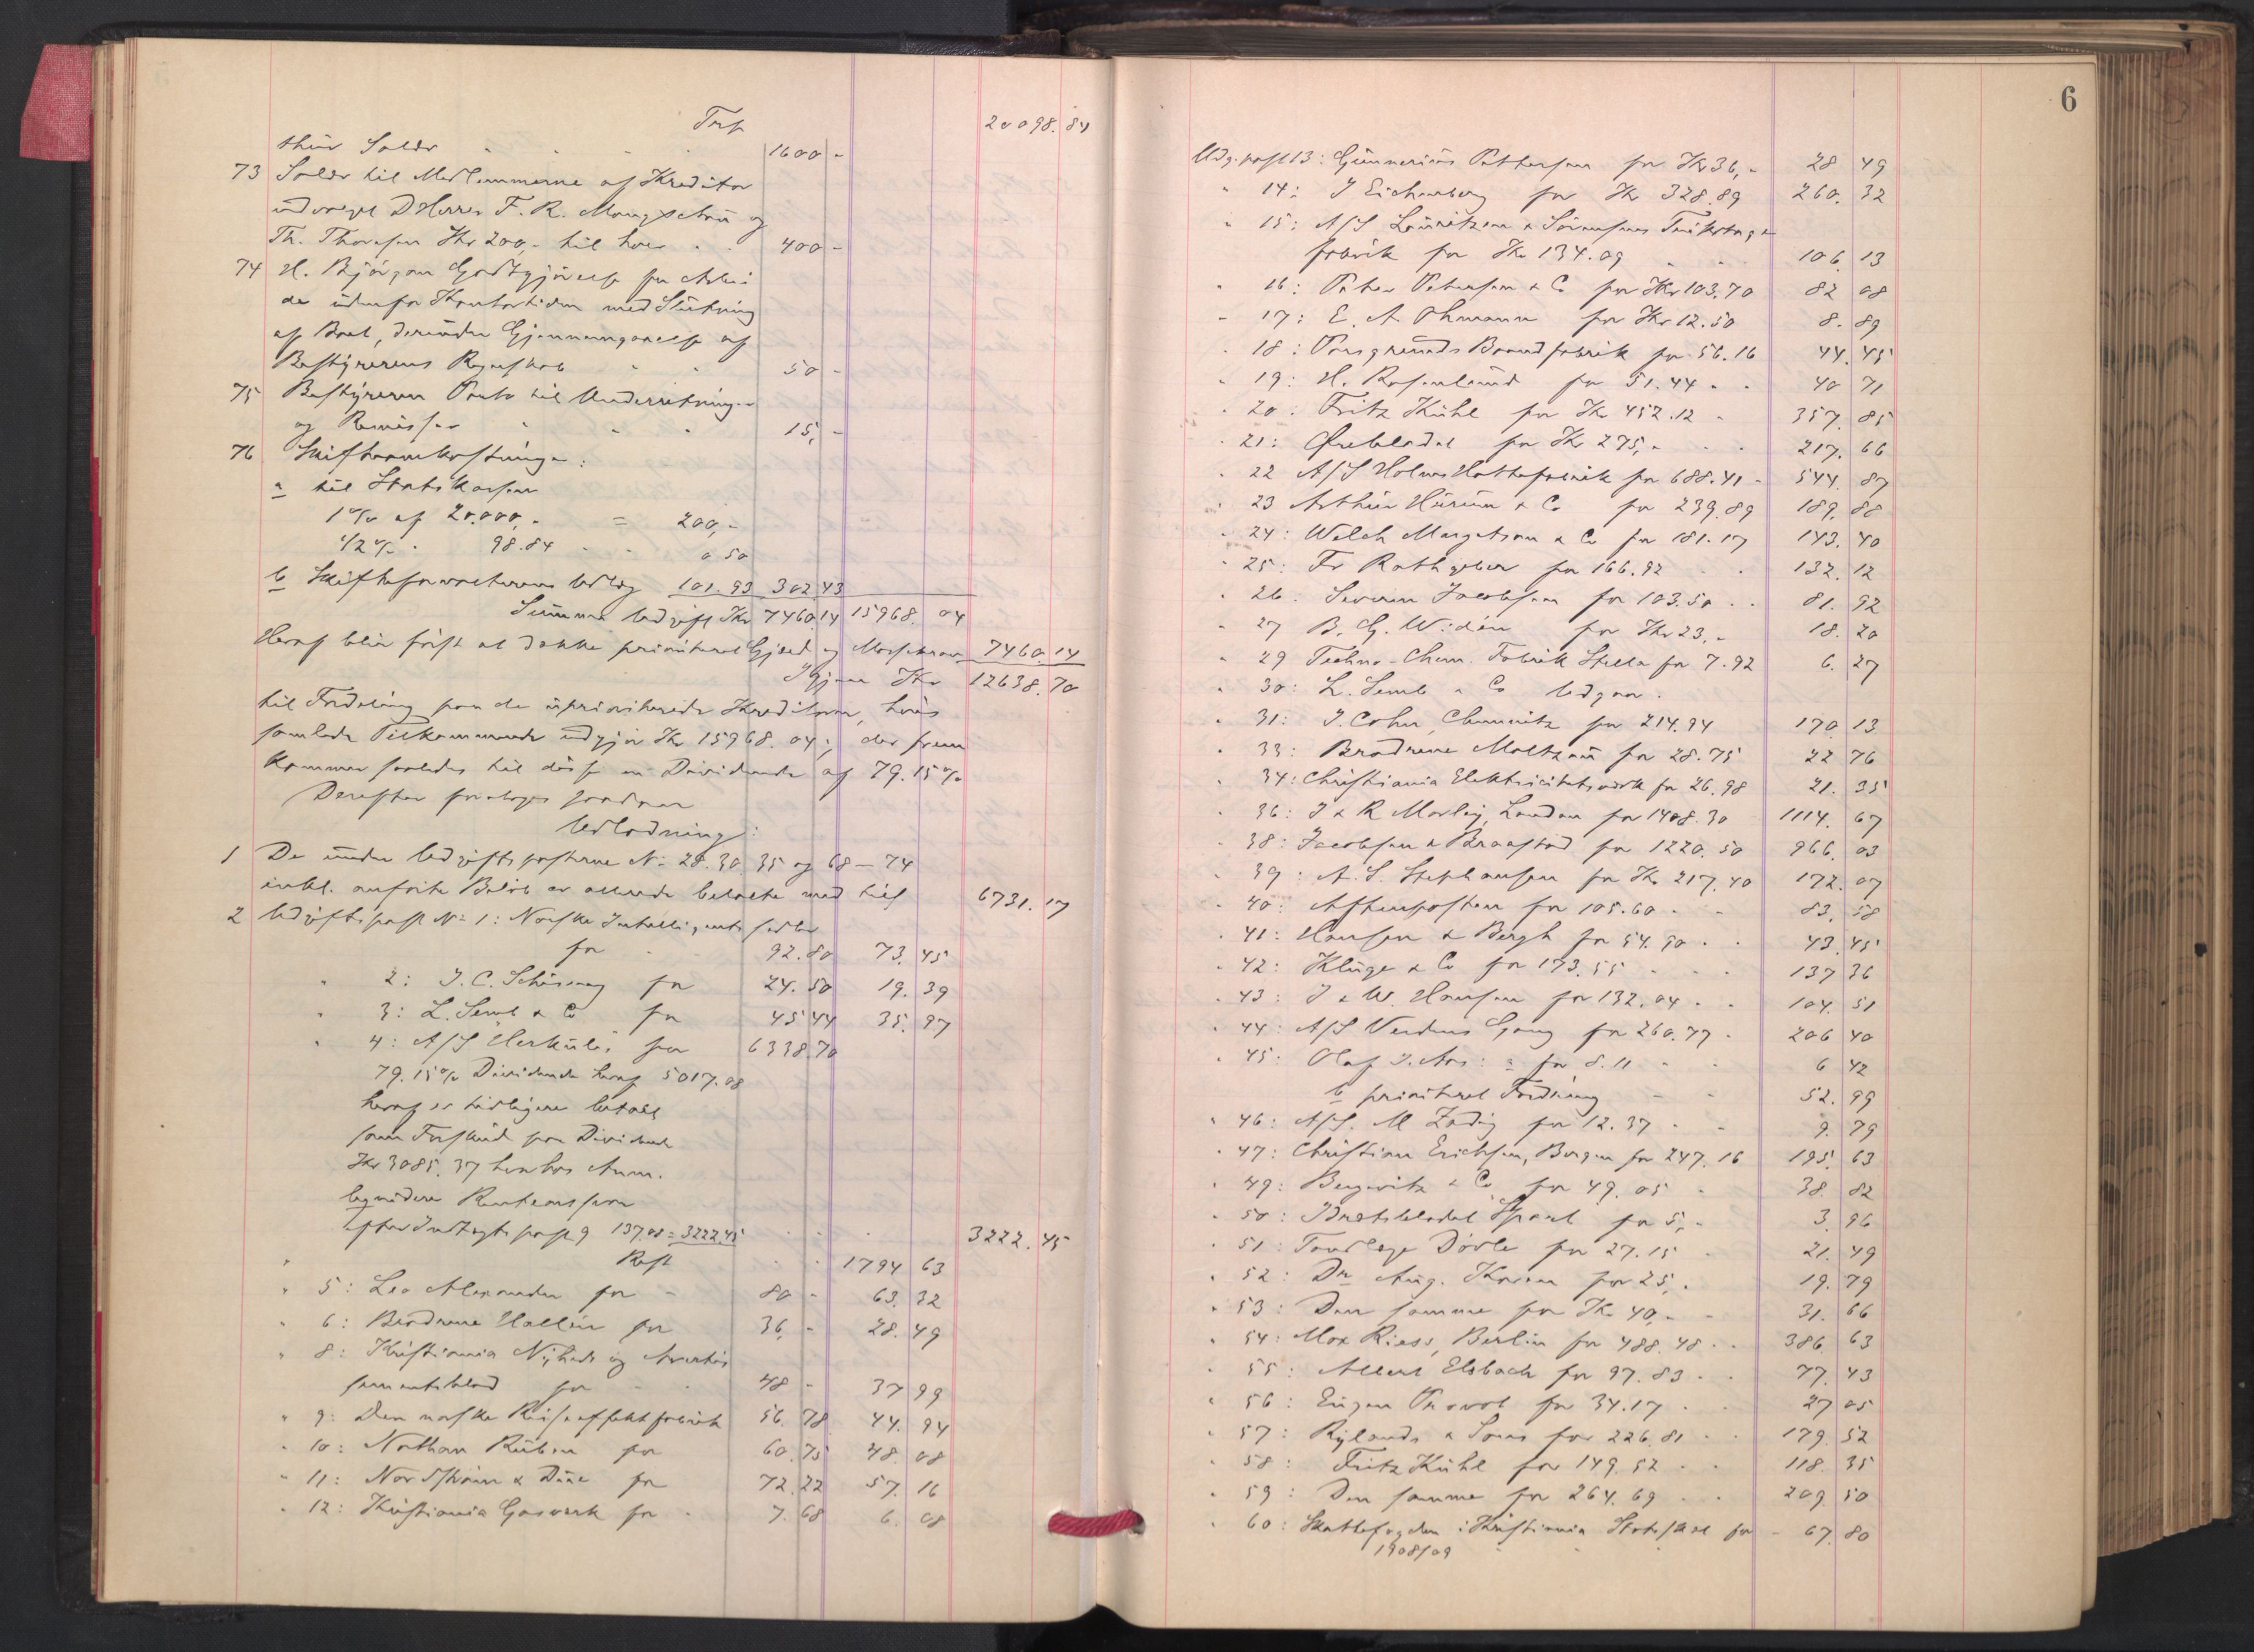 Trsp. 20098.84
thur Salær 1600 -
73 Salær til Medlemmerne af Kreditor
udvalget D'Herrer F. R. Mangschou og
Th. Thoresen Kr 200,- til hver 400 -
74 H. Bjørgan Godtgjørelse for Arbei
de udenfor Kontortiden med Slutning
af Boet, derunder Gjennemgaaelse af
Bestyrerens Regnskab 50 -
75 Bestyreren Porto til Underretninger
og Remisser 15,-
76 Skifteomkostninger:
a til Statskassen
1 % af 20.000,- = 200,-
1/2 % " 98.84 0 50
b Skifteforvalterens Udlæg 101.93 302.43
Summa Udgift Kr 7460.14 15968.04
Heraf blir først at dække prioriteret Gjæld og Massekrav 7460.14
Igjen Kr 12638.70
til Fordeling paa de uprioriterede Kreditorer, hvis
samlede Tilkommende udgjør Kr 15968.04; der frem
kommer saaledes til disse en Dividende af 79.15 %
Derefter foretoges saadan
Udlodning:
1 De under Udgiftsposterne No 28. 30. 35 og 68 - 74
inkl. anførte Beløb er allerede betalte med tils 6731.17
2 Udgiftspost No 1: Norske Intelligentssedler
for 92.80 73.45
" 2: J. C. Schiwag for 24.50 19.39
" 3: L. Semb & Co for 45 44 35.97
" 4: A/S Herkules for 6338.70
79.15 % Dividende heraf 5017.08
heraf er tidligere betalt
som Forskud paa Dividende
Kr 3085.37 hvortil kom.
begunders Rentensson
efter Indtægtspost 9 137.08 = 3222.45 3222.45
" Rest 1794 63
" 5: Leo Alexander for 80 - 63.32
" 6: Brødrene Hallén for 36,- 28.49
" 8: Kristiania Nyheds og Avertis
sementsblad for 48 - 37 99
" 9: Den norske Reiseeffektfabrik 56.78 44.94
" 10: Nathan Ruben for 60.75 48.08
" 11: Nordstrøm & Due for 72.22 57.16
" 12: Kristiania Gasværk for 7.68 6.08
6
Udg.post 13: Gunnerius Pettersen for Kr 36,- 28 49
" 14: J Eichenberg for Kr 328.89 260.32
" 15: A/S Lauritzen & Sørensens Trikotage
fabrik for Kr 134.09 106.13
" 16: Peter Petersen & Co for Kr 103.70 82 08
" 17: E. A. Ohmann for Kr 12.50 8.89
" 18: Porsgrunds Baandfabrik for 56.16 44.45
" 19: H. Rosenlund for 51.44 40 71
" 20: Fritz Kühl for Kr 452.12 357.85
" 21: Ørebladet for Kr 275,- 217.66
" 22 A/S Holms Hattefabrik for 688.41 544.87
" 23 Arthur Hürum & Co for 239.89 189.88
" 24: Welch Margetson & Co for 181.17 143.40
" 25: Fr Rathgeber for 166.92 132.12
" 26: Severin Jacobsen for 103.50 81.92
" 27 B. G. Widén for Kr 23,- 18.20
" 29 Techno-Chem. Fabrik Stella for 7.92 6.27
" 30: L. Semb & Co udgaar.
" 31: J. Cohn, Chemnitz for 214.94 170 13
" 33: Brødrene Moltzau for 28.75 22 76
" 34: Christiania Elektricitetsværk for 26.98 21.35
" 36: I & R Morley, London for 1408.30 1114.67
" 38: Jacobsen & Braastad for 1220.50 966.03
" 39: A. S. Stephansen for Kr 217.40 172.07
" 40: Aftenposten for 105.60 83.58
" 41: Hansen & Bergh for 54.90 43.45
" 42: Kluge & Co for 173.55 137 36
" 43: J & W. Hansen for 132.04 104.51
" 44: A/S Verdens Gang for 260.77 206 40
" 45: Olaf I. Aas: a for 8.11 6 42
b prioriteret Fordring 52.99
" 46: A/S. M Zadig for 12.37 9.79
" 47: Christian Erichsen, Bergen for 247.16 195.63
" 49: Bergwitz & Co for 49.05 38.82
" 50: Idrætsbladet Sport for 5,- 3.96
" 51: Tandlæge Døvle for 27.15 21.49
" 52: Dr Aug. Koren for 25,- 19.79
" 53: Den samme for Kr 40,- 31.66
" 54: Max Riess, Berlin for 488.48 386 63
" 55: Albert Elsbach for 97.83 77.43
" 56: Eugen Provot for 34.17 27 05
" 57: Rylands & Sons for 226.81 179.52
" 58: Fritz Kühl for 149.52 118.35
" 59: Den samme for 264.69 209 50
" 60: Skattefogden i Kristiania Statsskat for 67.80
1908/09